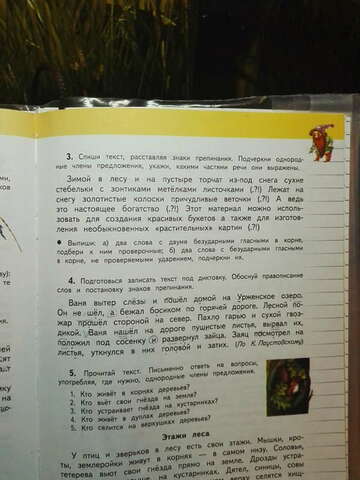 3. Спиши текст, расставляя знаки препинания. Подчеркни однород-
ные члены предложения, укажи, какими частями речи они выражены.
Зимой в лесу и на пустыре торчат из-под снега сухие
стебельки с зонтиками метёлками листочками (.?!) Лежат на
снегу золотистые колоски причудливые веточки (.?!) А ведь
это настоящее богатство (.?!) Этот материал можно исполь-
зовать для создания красивых букетов а также для изготов-
ления необыкновенных «растительных» картин (.?!)
Выпиши: а) два слова с двумя безударными гласными в корне,
подбери к ним проверочные; б) два слова с безударными гласными
в корне, не проверяемыми ударением, подчеркни их.
4. Подготовься записать текст под диктовку. Обоснуй правописание
слов и постановку знаков препинания.
Ваня вытер слёзы и пошёл домой на Урженское озеро.
Он не шёл, а бежал босиком по горячей дороге. Лесной по-
жар прошёл стороной на север. Пахло гарью и сухой гвоз-
дикой. Ваня нашёл на дороге пушистые листья, вырвал их,
положил под сосенку и развернул зайца. Заяц посмотрел на
листья, уткнулся в них головой и затих. (По К. Паустовскому)
5. Прочитай текст. Письменно ответь на вопросы,
употребляя, где нужно, однородные члены предложения.
1. Кто живёт в корнях деревьев?
2. Кто вьёт свои гнёзда на земле?
3. Кто устраивает гнёзда на кустарниках?
4. Кто живёт в дуплах деревьев?
5. Кто селится на верхушках деревьев?
Этажи леса
У птиц и зверьков в лесу есть свои этажи. Мышки, кро-
ты, землеройки живут в корнях — в самом низу. Соловьи,
тетерева вьют свои гнёзда прямо на земле. Дрозды устра-
ивают на кустарниках. Дятел, синицы, совы